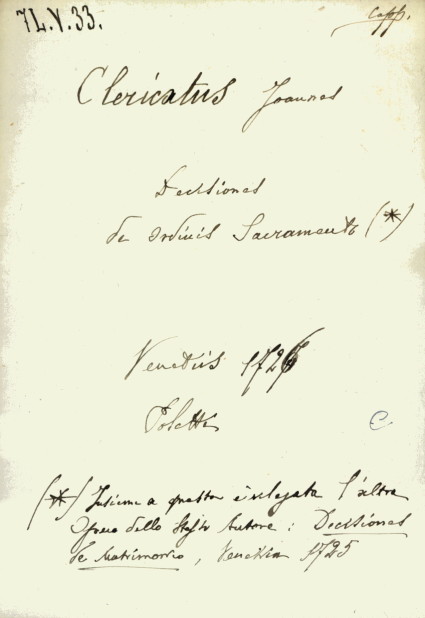 7 L.V.33.
Capp.
Clericatus Joannes
Decisiones
de Ordinis Sacramento (*)
Venetiis 1726
Poletti
C
(*) Insieme a questa è rilegata l'altra
Opera dello stesso Autore: Decisiones
de Matrimonio, Venezia 1725